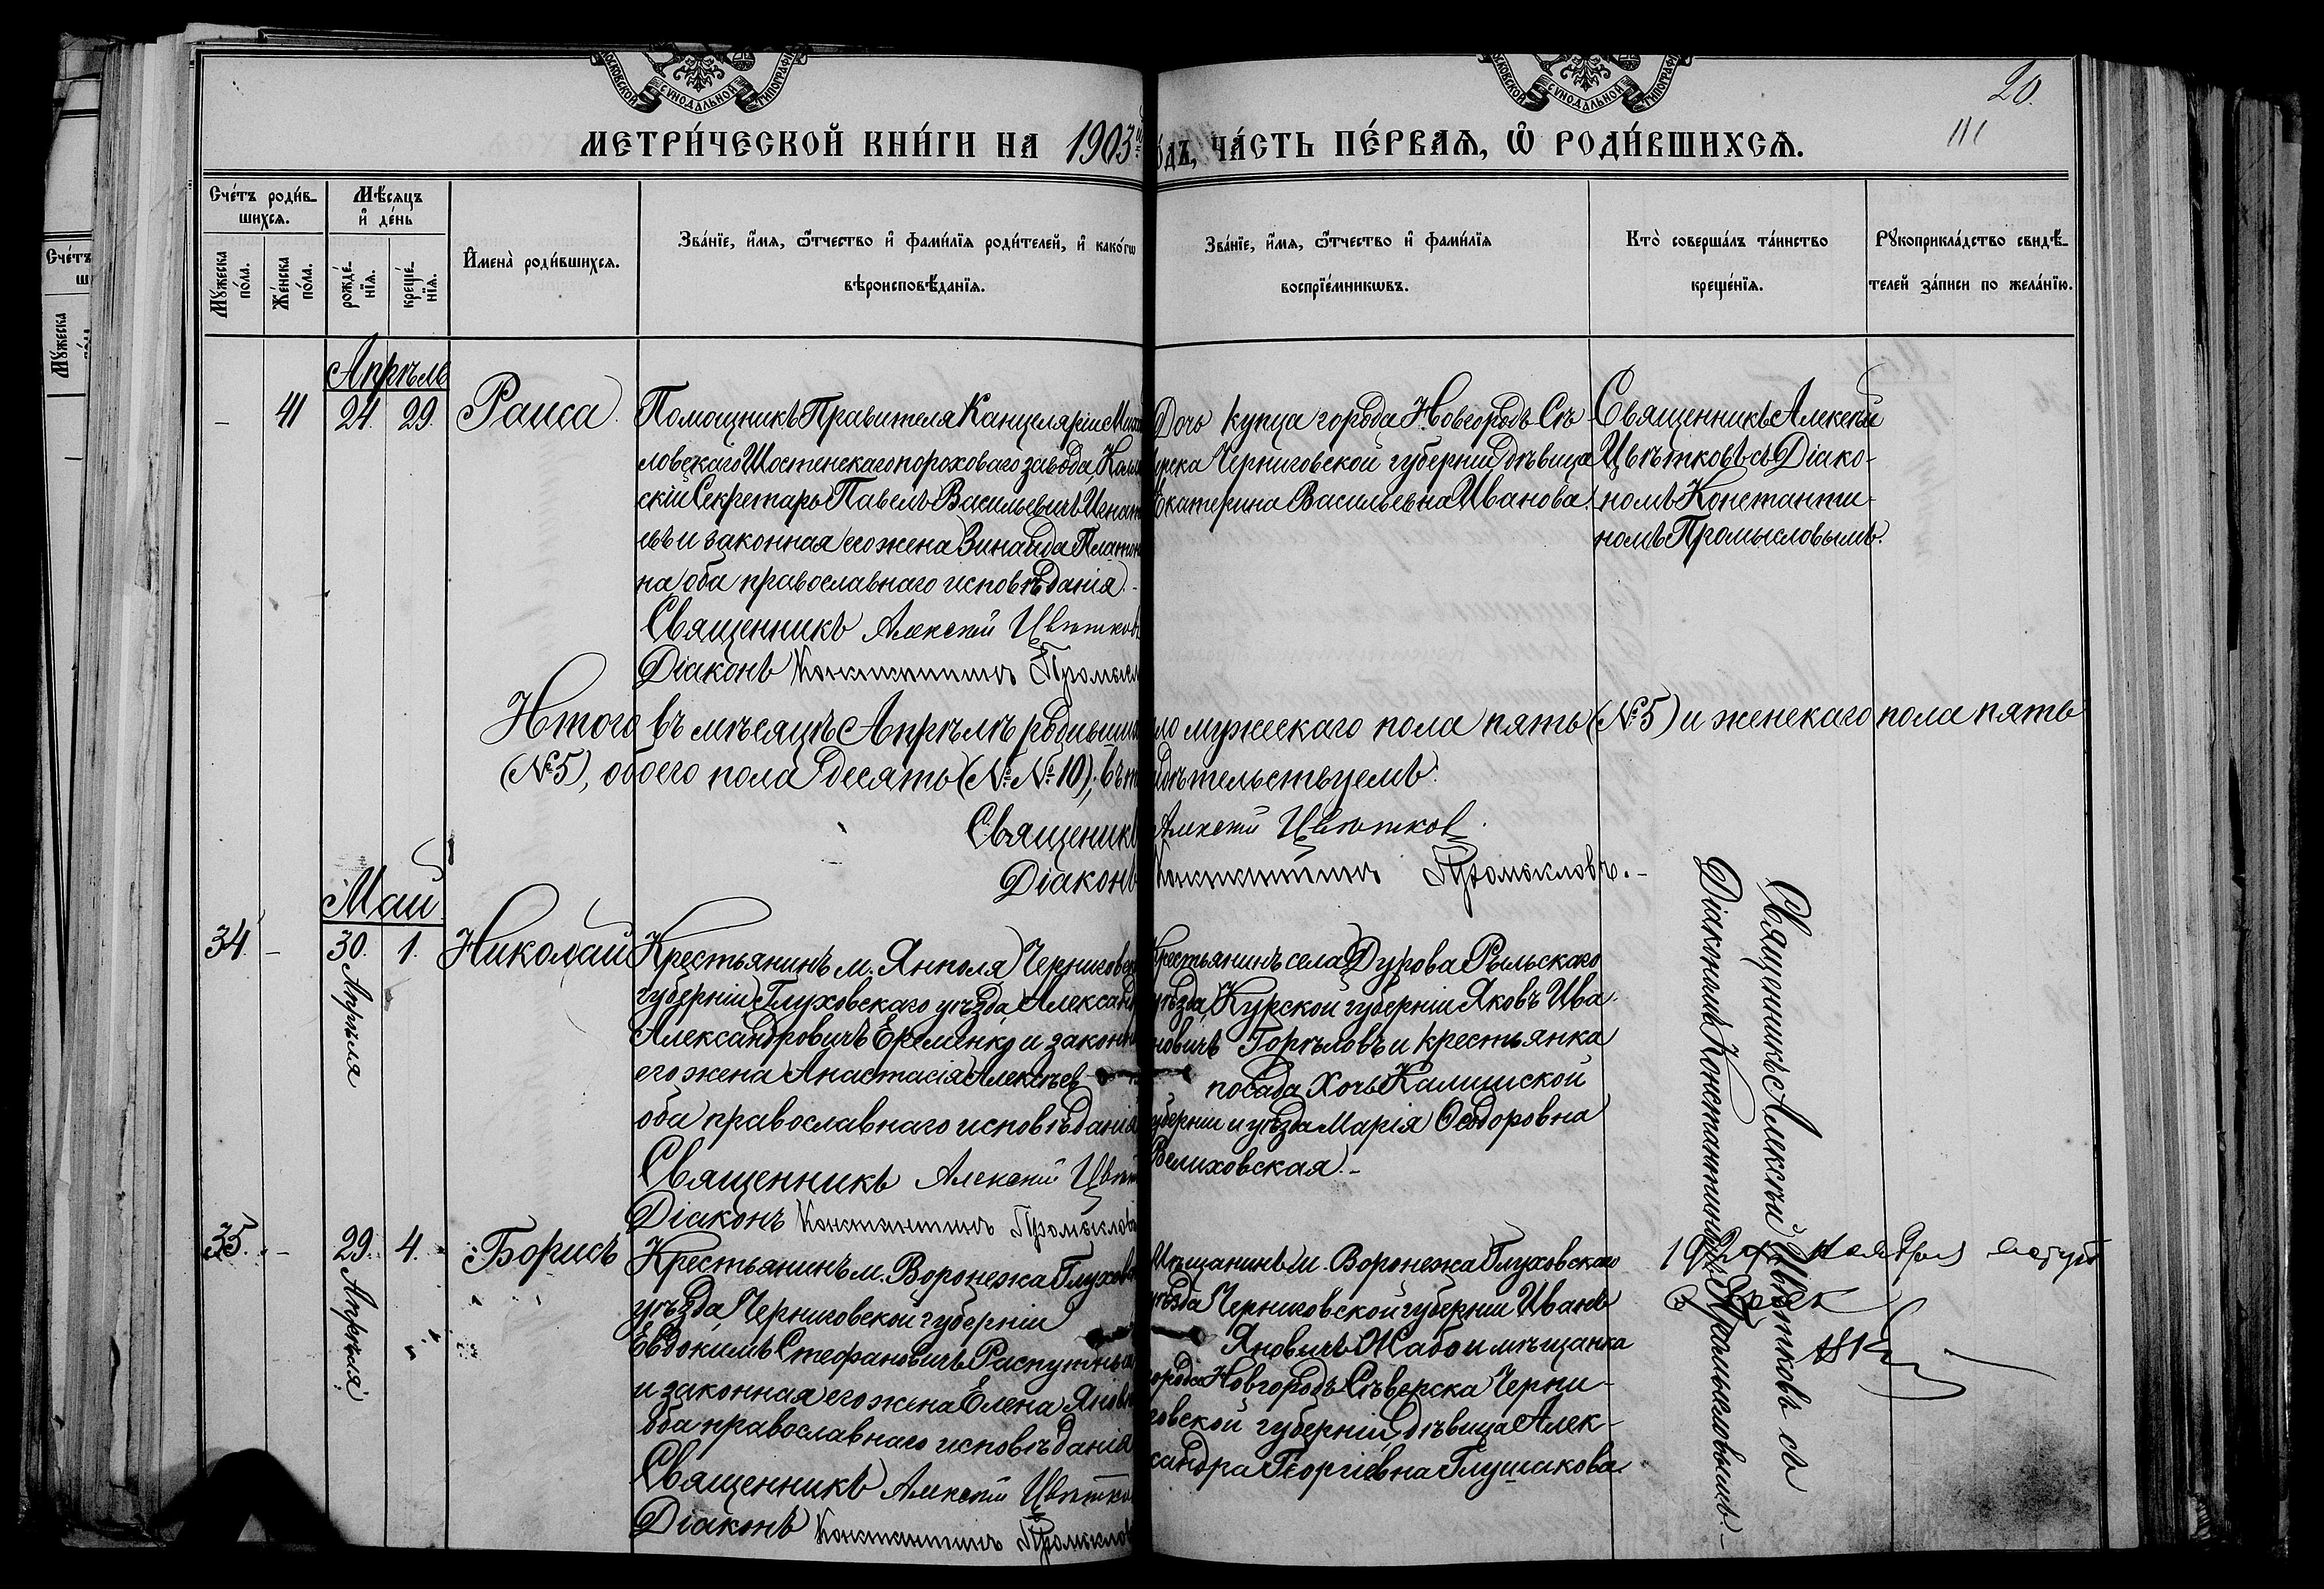 МОСКОВСКОЙ СѴНОДАЛЬНОЙ ТИПОГРАФІИ
МОСКОВСКОЙ СѴНОДАЛЬНОЙ ТИПОГРАФІИ
20.
111
МЕТРИ́ЧЕСКОЙ КНИ́ГИ НА 1903й
о́дъ, ЧА́СТЬ ПЕ́РВАѦ, Ѡ҆ РОДИ́ВШИХСѦ.
Сче́тъ роди́в-
шихсѧ.
Мꙋ́жеска по́ла.
Же́нска по́ла.
Мѣ́сѧцъ
и҆ де́нь
рожде́-нїѧ.
креще́-нїѧ.
И҆мена̀ роди́вшихсѧ.
Зва́нїе, и҆́мѧ, ѻ҆́тчество и҆ фами́лїѧ роди́телей, и҆ како́гѡ
вѣроисповѣ́данїѧ.
Зва́нїе, и҆́мѧ, ѻ҆́тчество и҆ фами́лїѧ
воспрїе́мникѡвъ.
Кто̀ соверша́лъ та́инство
креще́нїѧ.
Рꙋкоприкла́дство свидѣ́-
телей за́писи по жела́нїю.
Апрѣль
- 41 24. 29. Раиса.
Помощникъ Правителя Канцеляріи Миха
ловскаго Шостенскаго пороховаго завода, Колл
скій Секретарь Павелъ Васильевичъ Игнат
въ и законная его жена Зинаида Платон
на оба православнаго исповѣданія.-
Священникъ Алексѣй Цвѣтковъ
Діаконъ Константинъ Промысл
Дочь купца города Новгородъ-Сѣ-
ерска Черниговской губерніи дѣвица
Екатерина Васильевна Иванова.
Священникъ Алексѣй
Цвѣтковъ съ Діако-
номъ Константи-
номъ Промысловымъ.
Итого въ мѣсяцѣ Апрѣлѣ родивших ло мужескаго пола пять (№5) и женскаго пола пять
(№5), обоего пола десять (№№10); въ т идѣтельствуемъ:
Священикъ Алексѣй Цвѣтков
Діаконъ Константинъ Промысловъ.-
Май
34. - 30. Апрѣля 1. Николай
Крестьянинъ м. Янполя Черниговск
губерніи Глуховскаго уѣзда Александ
Александровичъ Еременко и законн
его жена Анастасія Алексѣев
оба православнаго исповѣданія
Священникъ Алексѣй Цвѣт
Діаконъ Константинъ Промыслов
Крестьянинъ села Дурова Рыльскаго
уѣзда, Курской губерніи Яковъ Ива-
новичъ Горѣловъ и крестьянка
посада Хочь Калишской
губерніи и уѣзда Марія Ѳеодоровна
Велиховская.-
Священникъ Алексѣй Цвѣтковъ съ
Діакономъ Константиномъ Промысловымъ.-
35. - 29. Апрѣля 4. Борисъ
Крестьянинъ м. Воронежа Глухов
уѣзда Черниговской губерніи
Евдокимъ Стефановичъ Распутнь
и законная его жена Елена Яковл
оба православнаго исповѣданія
Священникъ Алексѣй Цвѣтко
Діаконъ Константинъ Промыслов
Мѣщанинъ м. Воронежа Глуховскаго
уѣзда Черниговской губерніи Иванъ
Яковичъ Жабо и мѣщанка
города Новгородъ-Сѣверска Черни-
говской губерніи, дѣвица Алек-
сандра Георгіевна Глушакова.
ноября вступ
в брак